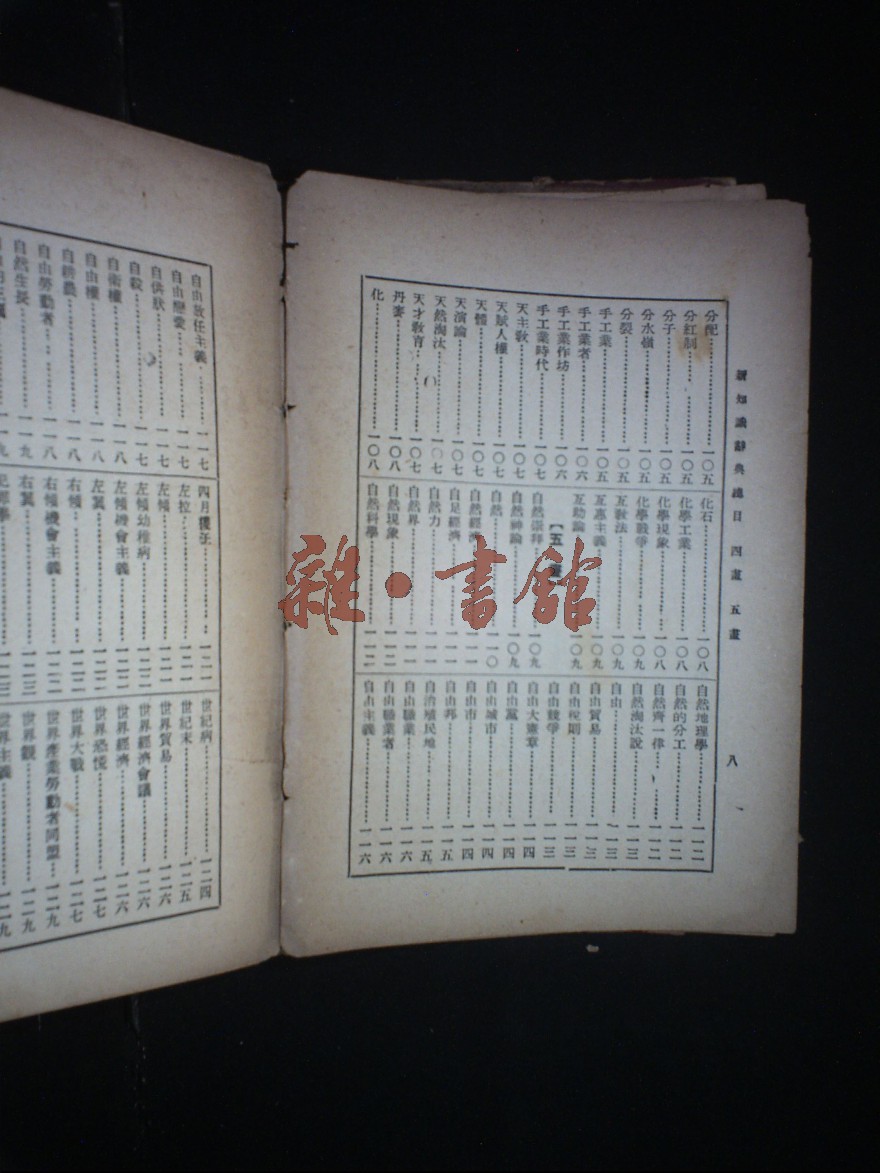 新知識辭典總目　四畫　五畫
八
分配……一〇五
分紅制……一〇五
分子……一〇五
分水嶺……一〇五
分裂……一〇五
手工業……一〇五
手工業者……一〇六
手工業作坊……一〇六
手工業時代……一〇七
天主敎……一〇七
天賦人權……一〇七
天體……一〇七
天演論……一〇七
天然淘汰……一〇七
天才敎育……一〇七
丹麥……一〇八
化……一〇八
化石……一〇八
化學工業……一〇八
化學現象……一〇八
化學戰爭……一〇九
互敎法……一〇九
互惠主義……一〇九
互助論……一〇九
【五畫】
自然崇拜……一〇九
自然神論……一〇九
自然……一一〇
自然經濟……一一一
自足經濟……一一一
自然力……一一一
自然界……一一一
自然現象……一一二
自然科學……一一二
自然地理學……一一二
自然的分工……一一二
自然齊一律……一一二
自然淘汰說……一一三
自由……一一三
自由貿易……一一三
自由稅則……一一三
自由競爭……一一三
自由大憲章……一一四
自由黨……一一四
自由城市……一一四
自由市……一一四
自由邦……一一五
自治殖民地……一一五
自由職業……一一六
自由職業者……一一六
自由主義……一一六
自由放任主義……一一七
自由戀愛……一一七
自供狀……一一七
自殺……一一七
自衛權……一一八
自由權……一一八
自耕農……一一八
自由勞動者……一一八
自然生長……一一九
四月提綱……一二一
左拉……一二一
左傾幼稚病……一二二
左傾機會主義……一二二
左翼……一二二
右傾……一二二
右傾機會主義……一二二
右翼……一二三
犯罪學……一二三
世紀病……一二四
世紀末……一二五
世界貿易……一二六
世界經濟會議……一二六
世界經濟……一二六
世界恐慌……一二七
世界大戰……一二七
世界產業勞動者同盟……一二九
世界觀……一二九
世界主義……一二九
雜·書館